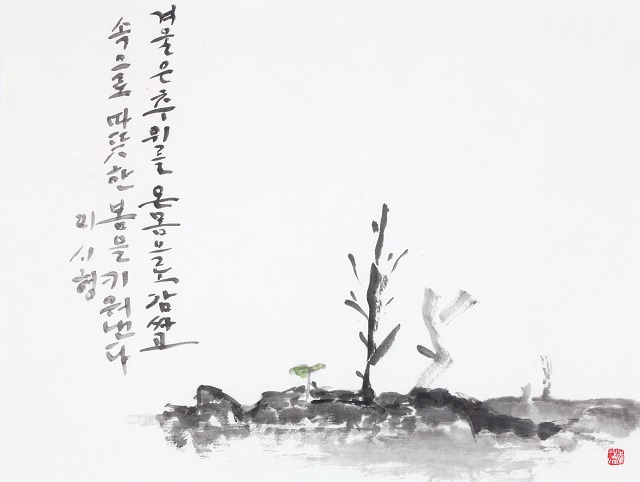 겨울은 추위를 온몸으로 감싸고
속으로 따뜻한 봄을 키워낸다
이시형